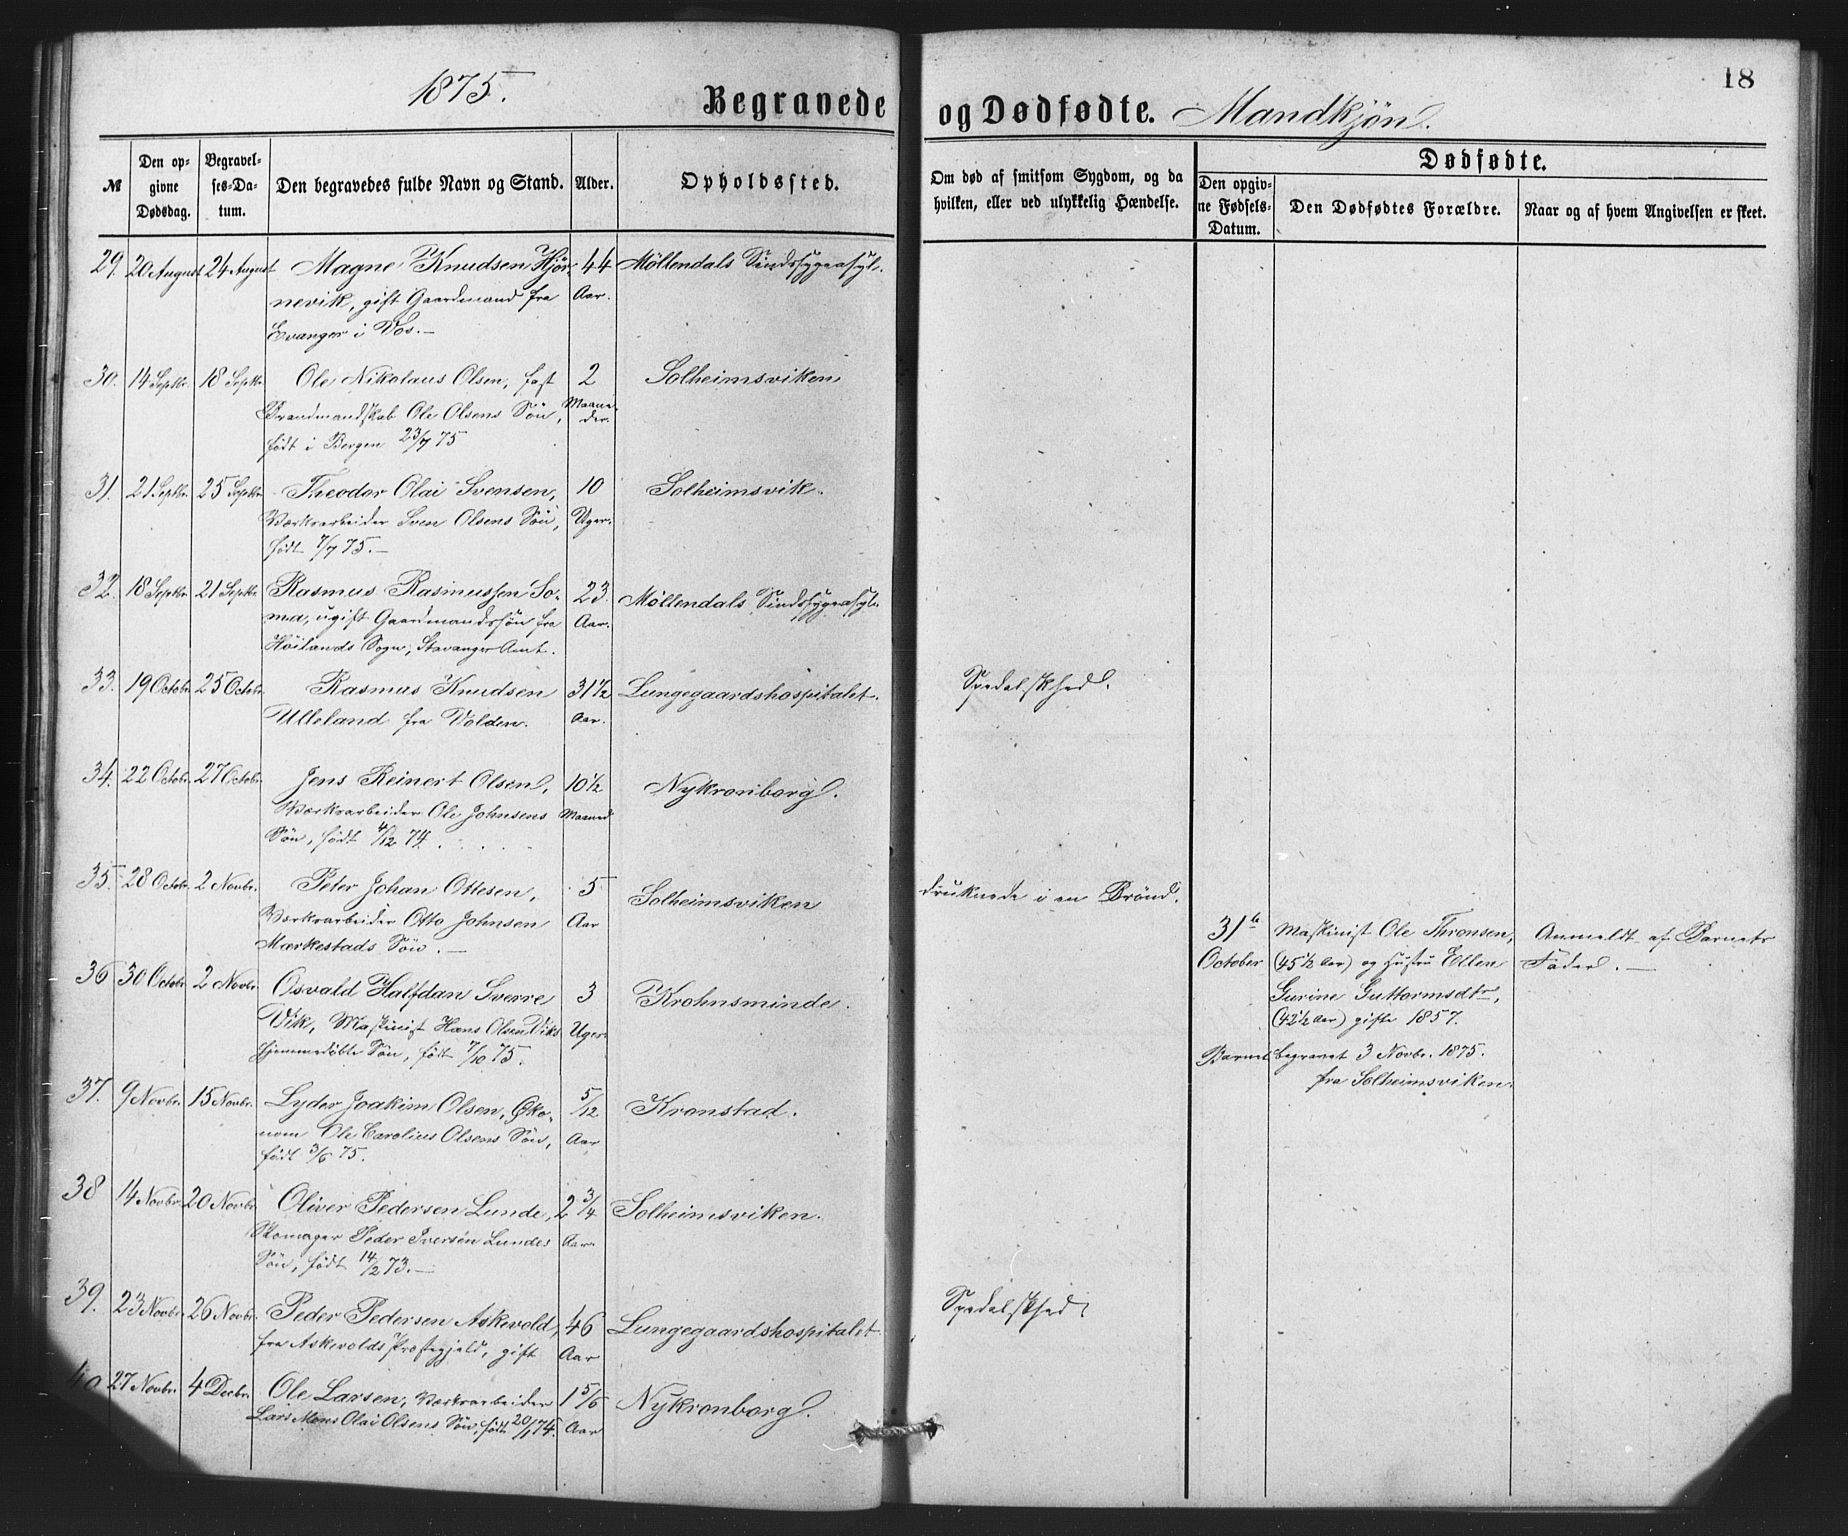 1875.
Begravede og Dødfødte. Mandkjøn.
18
№
Den opgivne Dødsdag.
Begravelses-Datum.
Den begravedes fulde Navn og Stand.
Alder.
Opholdssted.
Om død af smitsom Sygdom, og da hvilken, eller ved ulykkelig Hændelse.
Dødfødte.
Den opgivne Fødsels-Datum.
Den Dødfødtes Forældre.
Naar og af hvem Angivelsen er skeet.
29. 20 August 24 August Magne Knudsen Hjør- 44 Møllendals Sindssygeasyl.
nevik, gift Gaardmand fra Aar.
Evanger i Vos.–
30. 14 Septbr. 18 Septbr. Ole Nikolaus Olsen, fast 2 Solheimsviken
Brandmandskab Ole Olsens Søn, Maane-
der.
født i Bergen 23/7 75
31. 21 Septbr. 25 Septbr. Theodor Olai Svensen, 10 Solheimsvik.
Værksarbeider Sven Olsens Søn, Uger.
født 7/7 75.–
32. 18 Septbr. 21 Septbr. Rasmus Rasmussen So- 23. Møllendals Sindssygeasyl.
ma, ugift Gaardmandssøn fra Aar.
Høilands Sogn, Stavanger Amt.
33. 19 Octobr. 25 Octobr. Rasmus Knudsen 31 1/2 Lungegaardshospitalet. Spedalskhed.
Ulleland fra Volden. Aar.
34. 22 Octobr. 27 Octobr. Jens Reinert Olsen, 10 1/2 Nykronborg.
Værksarbeider Ole Johnsens Maaned
Søn, født 4/12 74.
35. 28 Octobr. 2 Novbr. Peter Johan Ottesen, 5 Solheimsviken druknede i en Brønd.
Værksarbeider Otto Johnsen Aar
Mærkestads Søn.–
31te Maskinist Ole Thronsen, Anmeldt af Barnets
October (45 1/2 Aar) og Hustru Ellen Fader.–
Gurine Guttormsdtr,
(42 1/2 Aar) gifte 1857.
Barnet begravet 3 Novbr. 1875.
fra Solheimsviken.
36 30 Octobr. 2 Novbr. Osvald Halfdan Sverre 3 Krohnsminde.
Vik, Maskinist Hans Olsen Viks Uger.
hjemmedøbte Søn, født 7/10 75.
37. 9 Novbr. 15 Novbr. Lyder Joakim Olsen, Øko- 5/12 Kronstad.
nom Ole Carolius Olsens Søn, Aar
født 3/6 75.
38 14 Novbr. 20 Novbr. Oliver Pedersen Lunde, 2 3/4 Solheimsviken.
Skomager Peder Iversen Lundes Aar.
Søn, født 14/2 73.–
39. 23 Novbr. 26 Novbr. Peder Pedersen Askevold, 46 Lungegaardshospitalet Spedalskhed.
fra Askevolds Præstegjeld, gift Aar
40 27 Novbr. 4 Decbr. Ole Larsen, Værksarbeider 1 5/6 Nykronborg.
Lars Mons Olai Olsens Søn, født 20/1 74. Aar